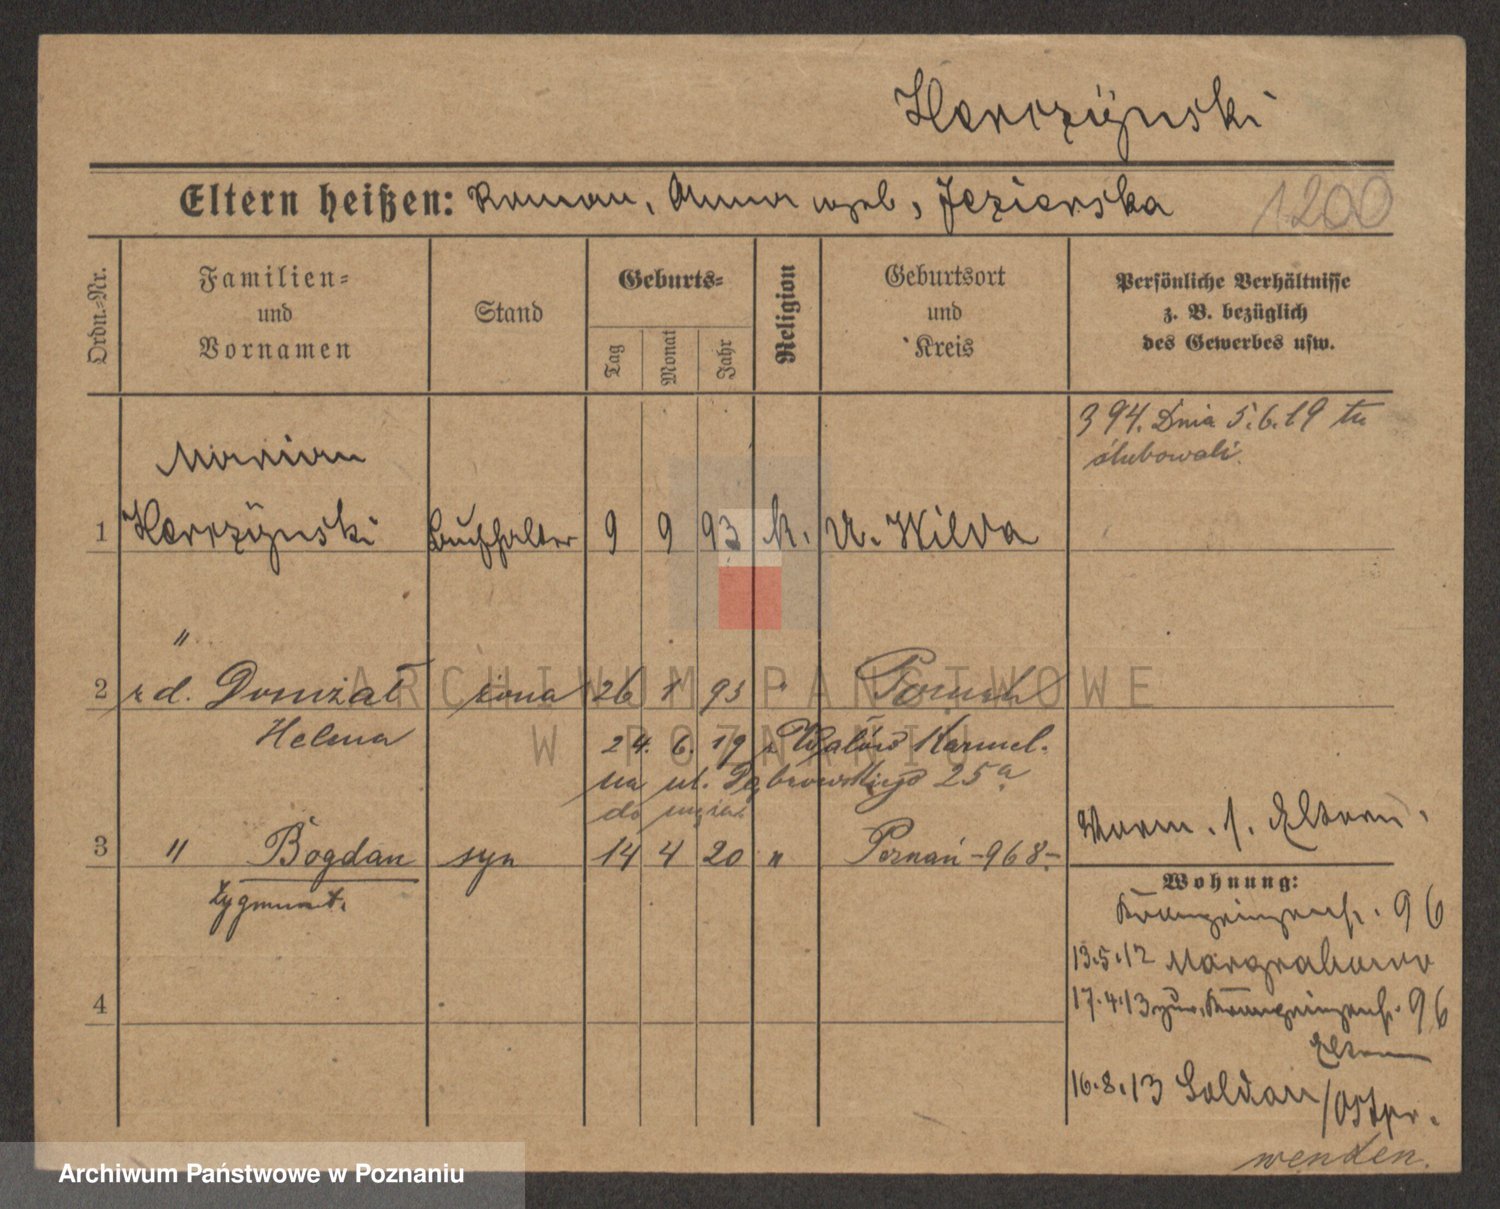 Harczÿnski
Eltern heißen: Roman, Anna geb, Jezierska
1200
Ordn.-Nr.
Familien-
und
Vornamen
Stand
Geburts-
Tag
Monat
Jahr
Religion
Geburtsort
und
Kreis
Persönliche Verhältnisse
z. B. bezüglich
des Gewerbes usw.
394. Dnia 5.6.19 tu
ślubowali.
Marian
1 Harczÿnski Buchhalter 9 9 93 k. U. Wilda
"
2 z d. Domżał żona 26 1 93 " Poznań
Helena 24. 6. 19 z Wałów Karmel.
na ul. Dąbrowskiego 25a
do
3 " Bogdan syn 14 4 20 " Poznań -968-
Zygmunt.
Vorm. s. Eltern.
Wohnung:
Kronprinzenstr. 96
13.5.12 Margrabowa
17.4.13 zur. Kronprinzenstr. 96
Eltern
16.8.13 Soldau /Ostpr.
4
wenden.
ARCHIWUM PAŃSTWOWE
W POZNANIU
Archiwum Państwowe w Poznaniu